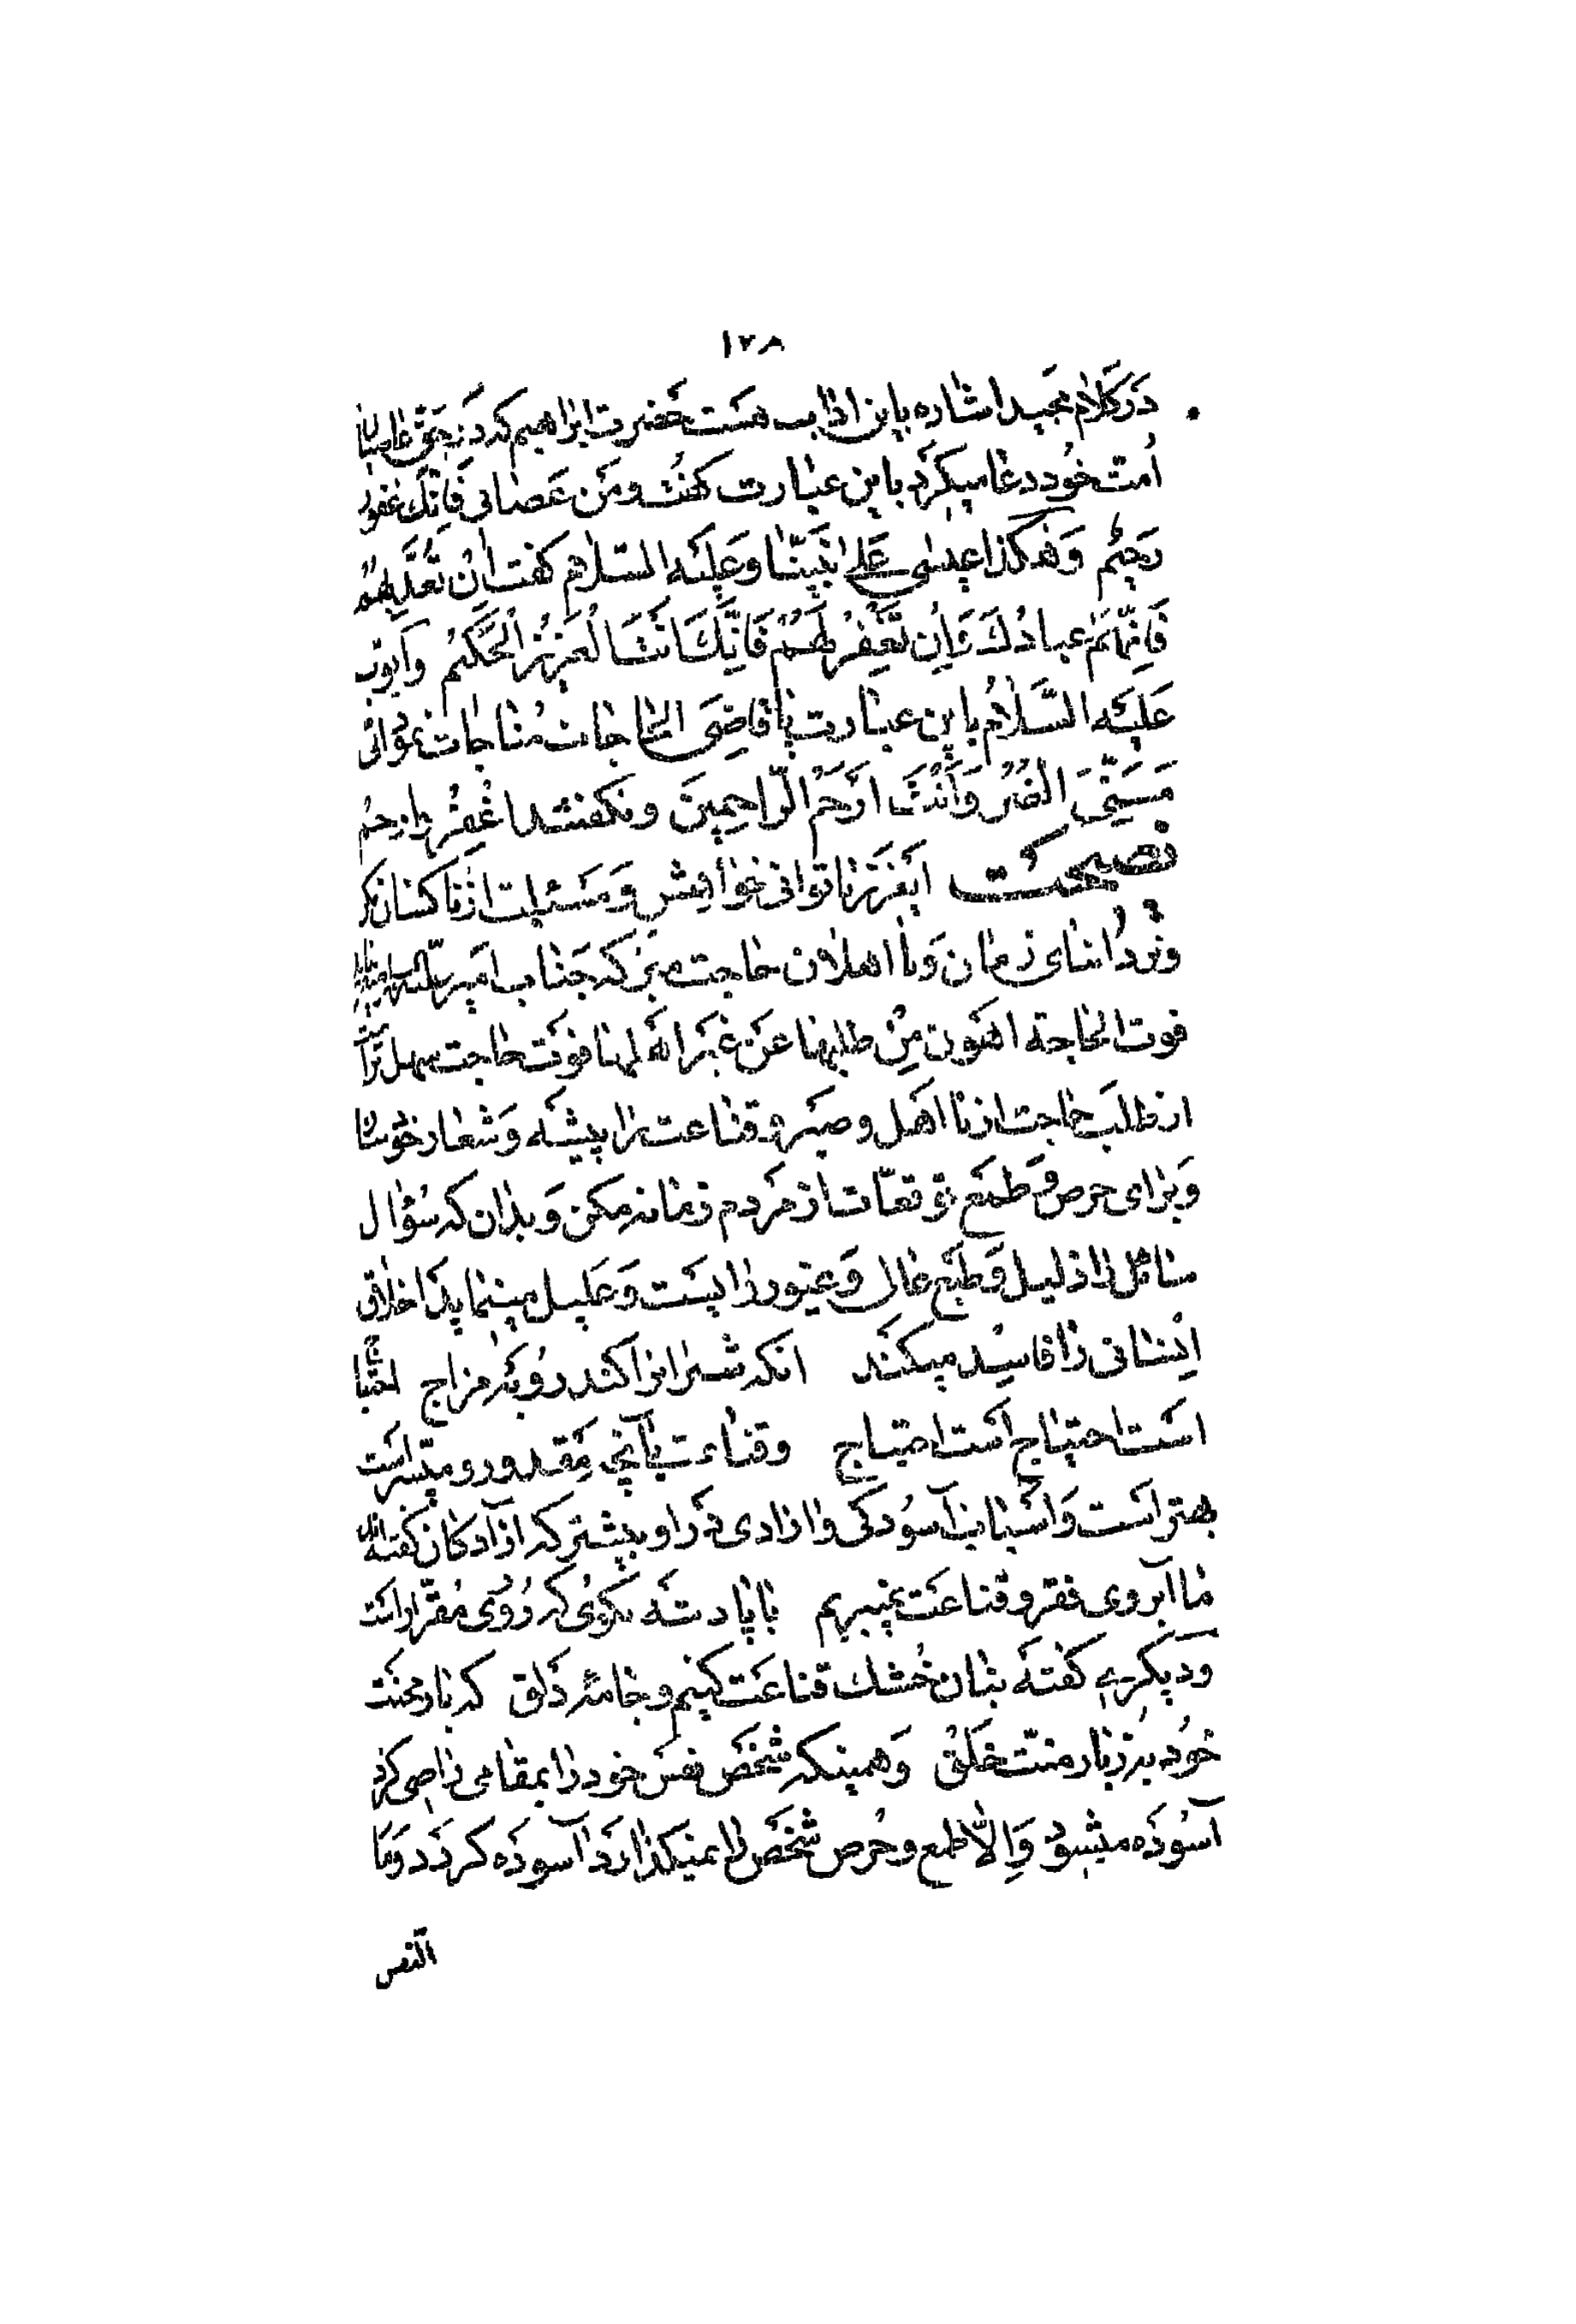 ۱۷۸
در کلام مجید اشاره باین اداب هست حضرت ابراهیم که در حق عاصیان
امت خود دعا میکرد باین عبارت گفت ومن عصانی فانك غفور
رحیم وهكذا عیسی علی نبینا وعلیه السلام گفت ان تعذبهم
فانهم عبادك وان تغفر لهم فانك انت العزیز الحکیم وایوب
علیه السلام باین عبارت با قاضی الحاجات مناجات نمود انی
مسنی الضر وانت ارحم الراحمین ونگفتند اغفر یا ارحم
نصیحت ایعزیز تا توانی خواهش ومسئلت از ناکسان مکن
ونزد ابنای زمان ونا اهلان حاجت مبر که جناب امیر
فوت الحاجة اهون من طلبها عن غیر اهلها فوت حاجت سهل تر است
از طلب حاجت از نا اهل وصبر وقناعت را پیشه وشعار خود ساز
وبرای حرص وطمع توقعات از مردم زمانه مکن وبدان که سؤال
سائل را ذلیل وطبع عالی وغیور را پست وعلیل مینماید اخلاق
انسانی را فاسد میکند انکه شیران را کند روبه مزاج احتیا
است احتیاج است احتیاج وقناعت بآنچه مقدور ومیسر است
بهتر است واسباب آسودگی وازادی در او بیشتر که ازادگان گفته اند
ما آبروی فقر وقناعت نمیبریم با پادشه بگوی که روزی مقرر است
ودیگری گفته بنان خشك قناعت کنیم وجامهٔ دلق که بار محنت
خود به ز بار منت خلق وهمینکه شخص نفس خود را بمقامی راضی کرد
آسوده میشود والا طمع وحرص شخص را نمیگذارد آسوده گردد وما
النفس